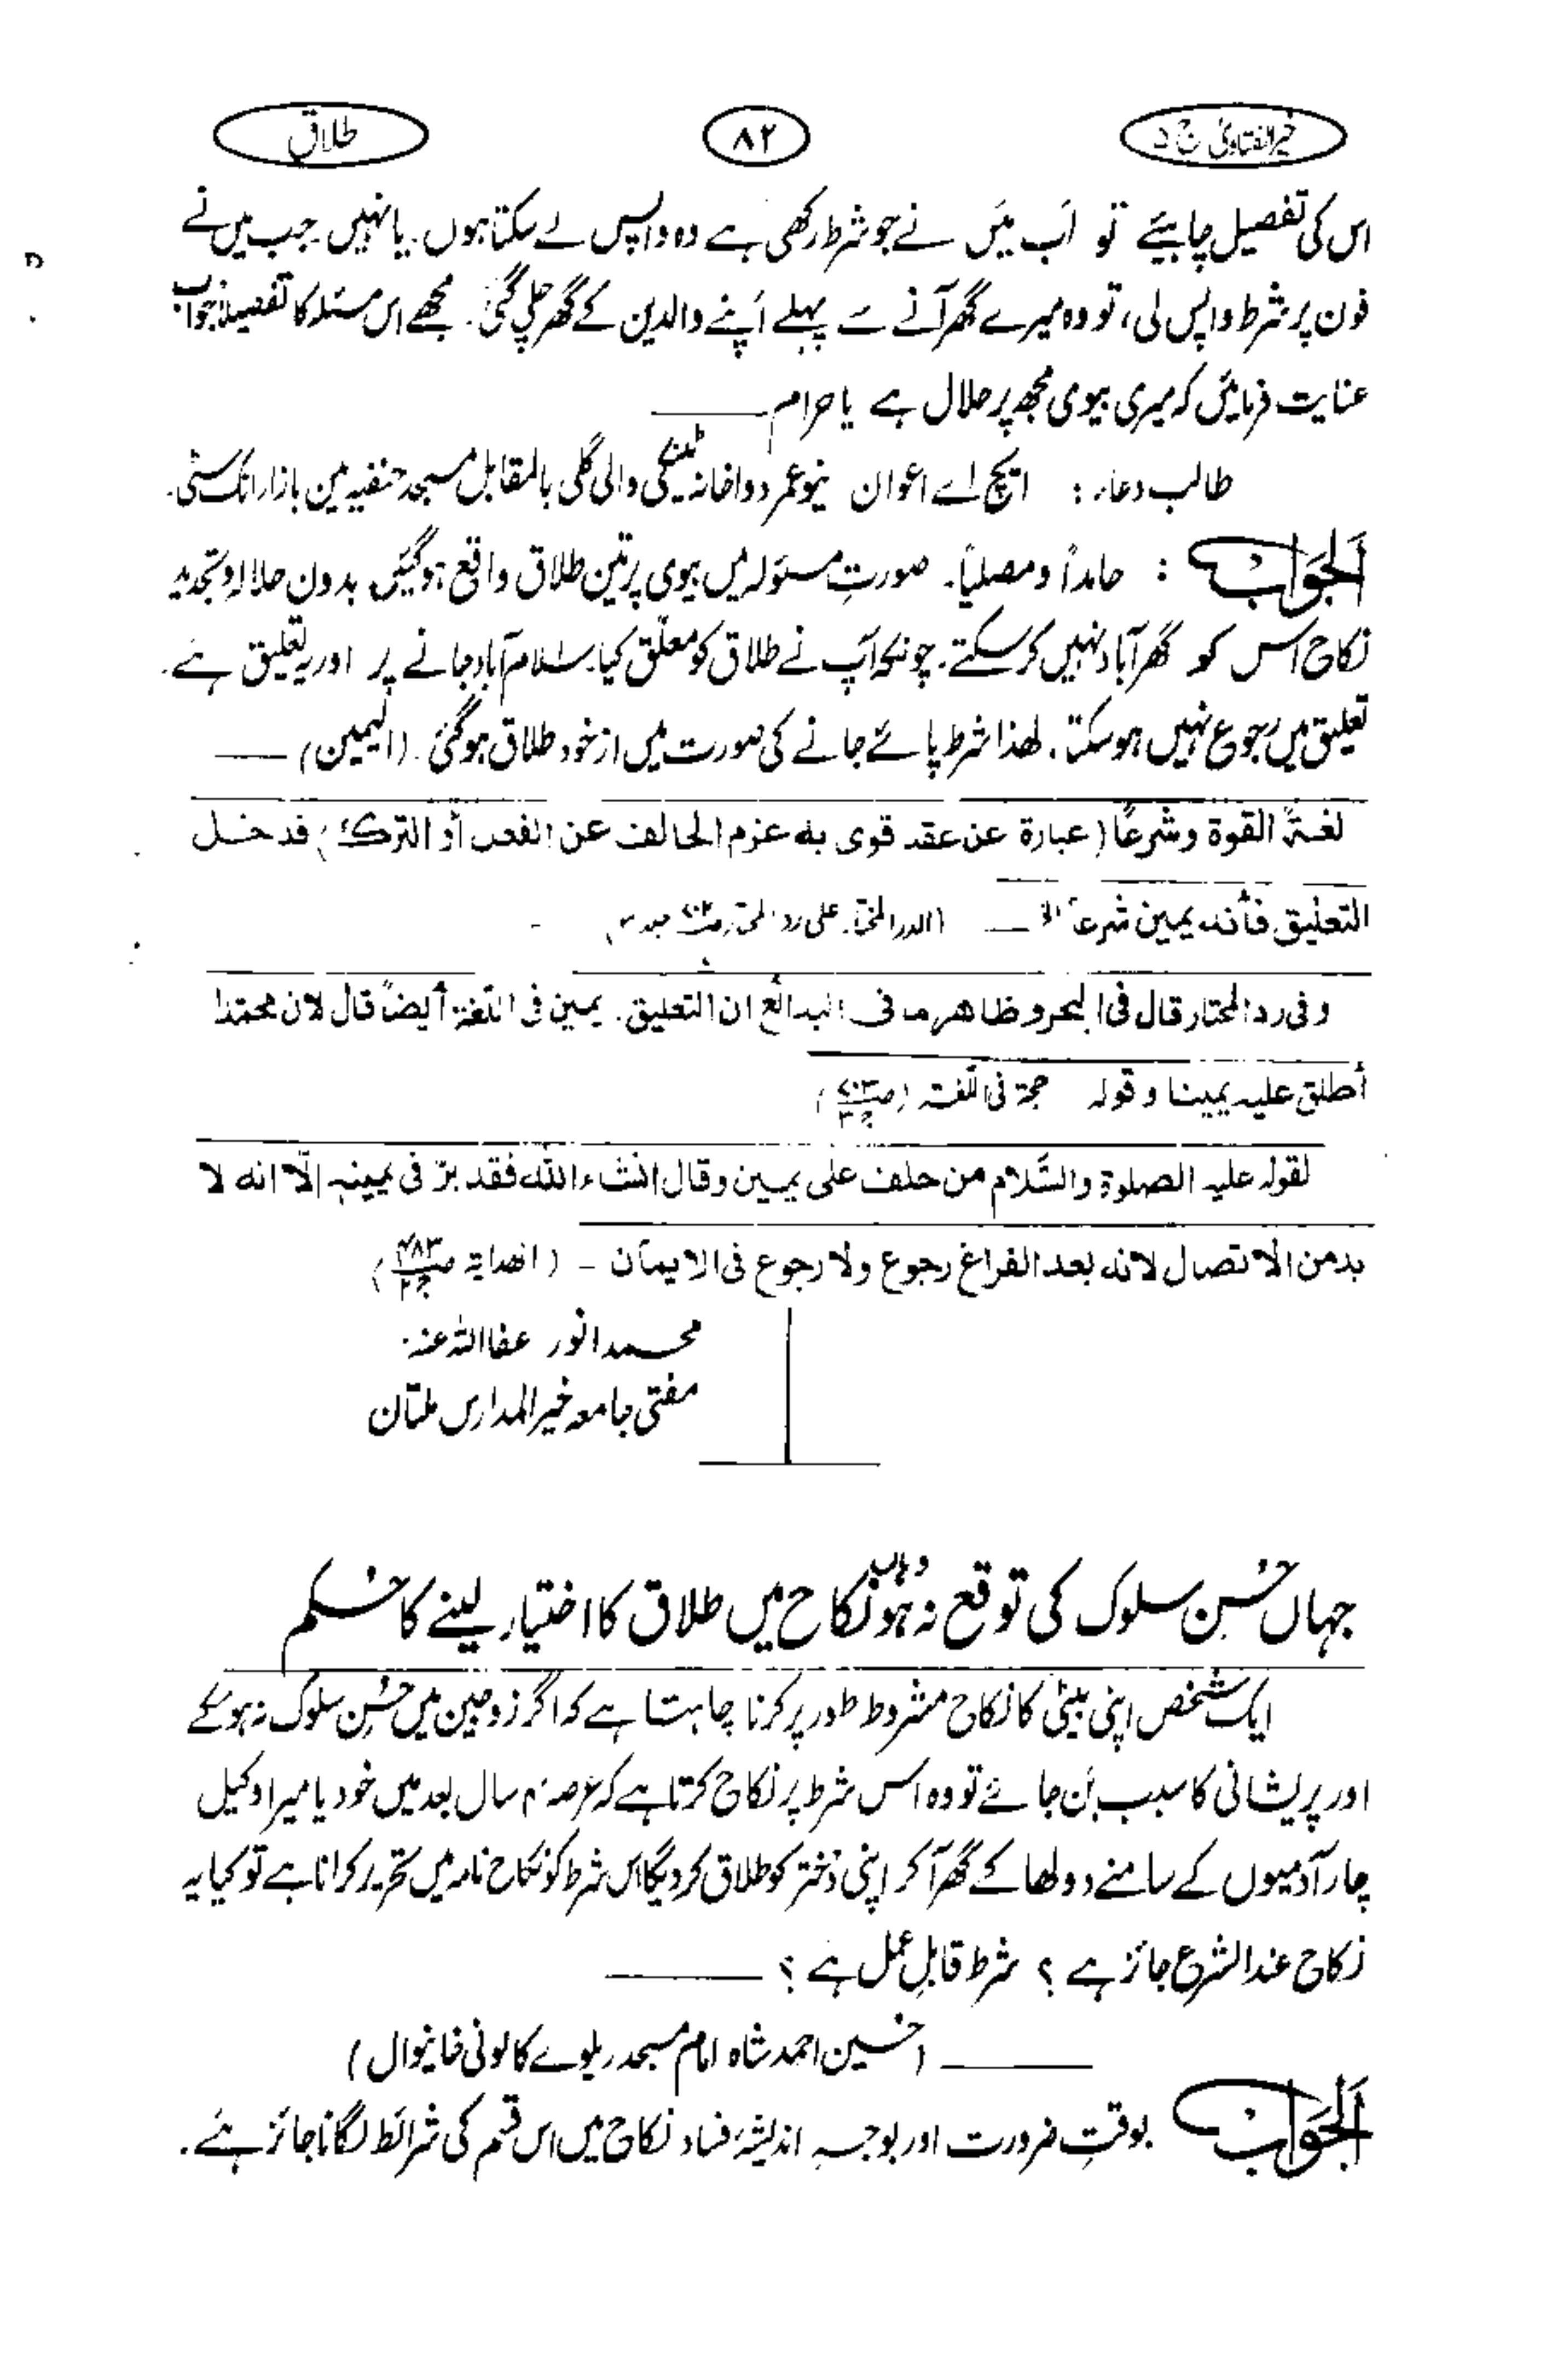 خیر الفتاویٰ ج ۵
۸۲
طلاق
اس کی تفصیل چاہیئے تو اَب میَں نے جو شرط رکھی ہے وہ واپس لے سکتا ہوں۔ یا نہیں۔ جب میں نے
فون پر شرط واپس لی، تو وہ میرے گھر آنے سے پہلے اَپنے والدین کے گھر چلی گئی۔ مجھے اس مسئلہ کا تفصیلاً جواب
عنایت فرمائیں کہ میری بیوی مجھ پر حلال ہے یا حرام
طالب دعاء: ایچ اے اعوان نیو عمر دواخانہ ٹینکی والی گلی بالمقابل مسجد حنفیہ مین بازار اٹک سٹی۔
اَلجَوَاب : حامداً ومصلیاً۔ صورتِ مسئولہ میں بیوی پر تین طلاق واقع ہوگئیں۔ بدون حلالہ و تجدید
نکاح اس کو گھر آباد نہیں کر سکتے۔ چونکہ آپ نے طلاق کو معلّق کیا۔ اسلام آباد جانے پر اور یہ تعلیق ہے۔
تعلیق میں رجوع نہیں ہو سکتا۔ لھذا شرط پائے جانے کی صورت میں از خود طلاق ہوگئی۔ (الیمین)
لغۃً القوة وشرعًا (عبارة عن عقد قوى به عزم الحالف عن الفعل أو الترك) فدخل
التعليق فأنه يمين شرعاً الخ (الدر المختار علی رد المحتار
وفى رد المحتار قال فى البحر وظاهر ما فى البدائع ان التعليق يمين فى اللغة أيضاً قال لان محمدا
أطلق عليه يمينا وقوله حجة فى اللغة (ص ج ۳)
لقوله عليه الصلوة والسَّلام من حلف على يمين وقال انشاء الله فقد برّ فى يمينه إلّا انه لا
بد من الاتصال لانه بعد الفراغ رجوع ولا رجوع فى الايمان - (الهداية ص۴۸۳ ج۲)
محمد انور عفا اللہ عنہ
مفتی جامعہ خیر المدارس ملتان
جہاں حُسنِ سلوک کی توقع نہ ہو وہاں نکاح میں طلاق کا اختیار لینے کا حُکم
ایک شخص اپنی بیٹی کا نکاح مشروط طور پر کرنا چاہتا ہے کہ اگر زوجین میں حُسنِ سلوک نہ ہوسکے
اور پریشانی کا سبب بَن جائے تو وہ اس شرط پر نکاح کرتا ہے کہ عرصہ ۴ سال بعد میں خود یا میرا وکیل
چار آدمیوں کے سامنے دولھا کے گھر آ کر اپنی دُختر کو طلاق کر دیگا اس شرط کو نکاح نامہ میں تحریر کراتا ہے تو کیا یہ
نکاح عند الشرع جائز ہے ؟ شرط قابلِ عمل ہے ؟
(حسین احمد شاہ امام مسجد ریلوے کالونی خانیوال)
اَلجَوَاب بوقتِ ضرورت اور بوجہِ اندیشۂ فساد نکاح میں اس قسم کی شرائط لگانا جائز ہے۔